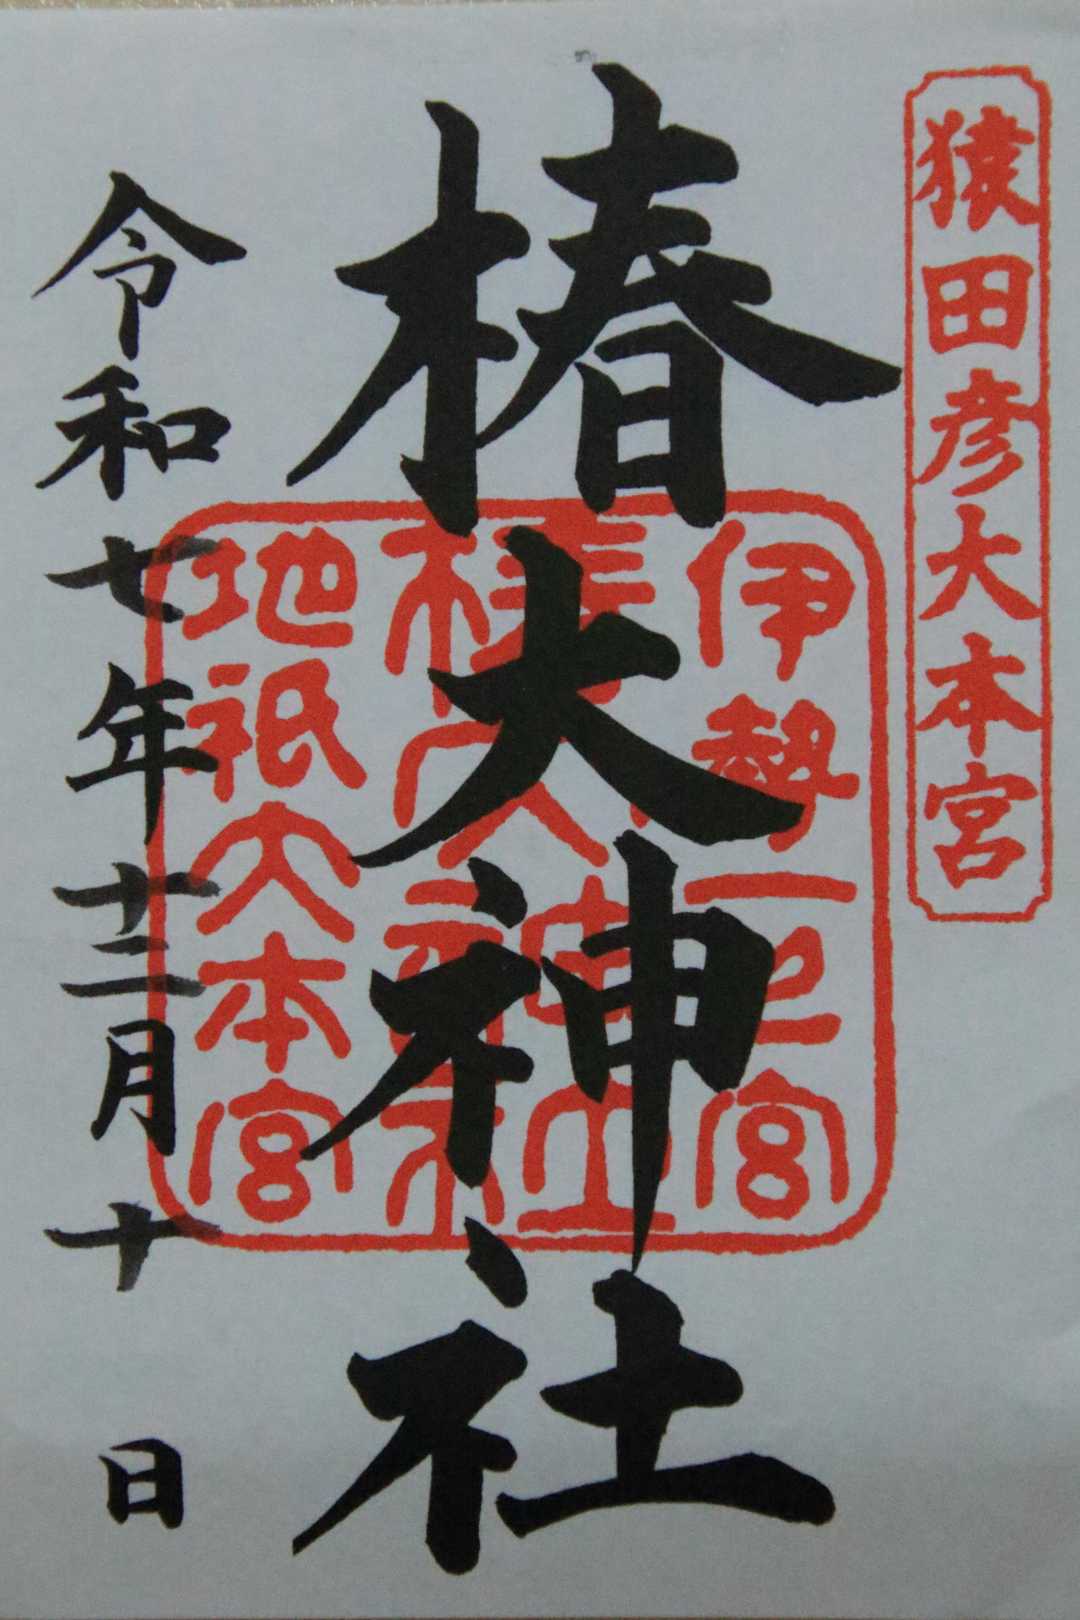 猿田彦大本宮
椿大神社
伊勢一之宮
椿大神社
地祇大本宮
令和七年十二月十日